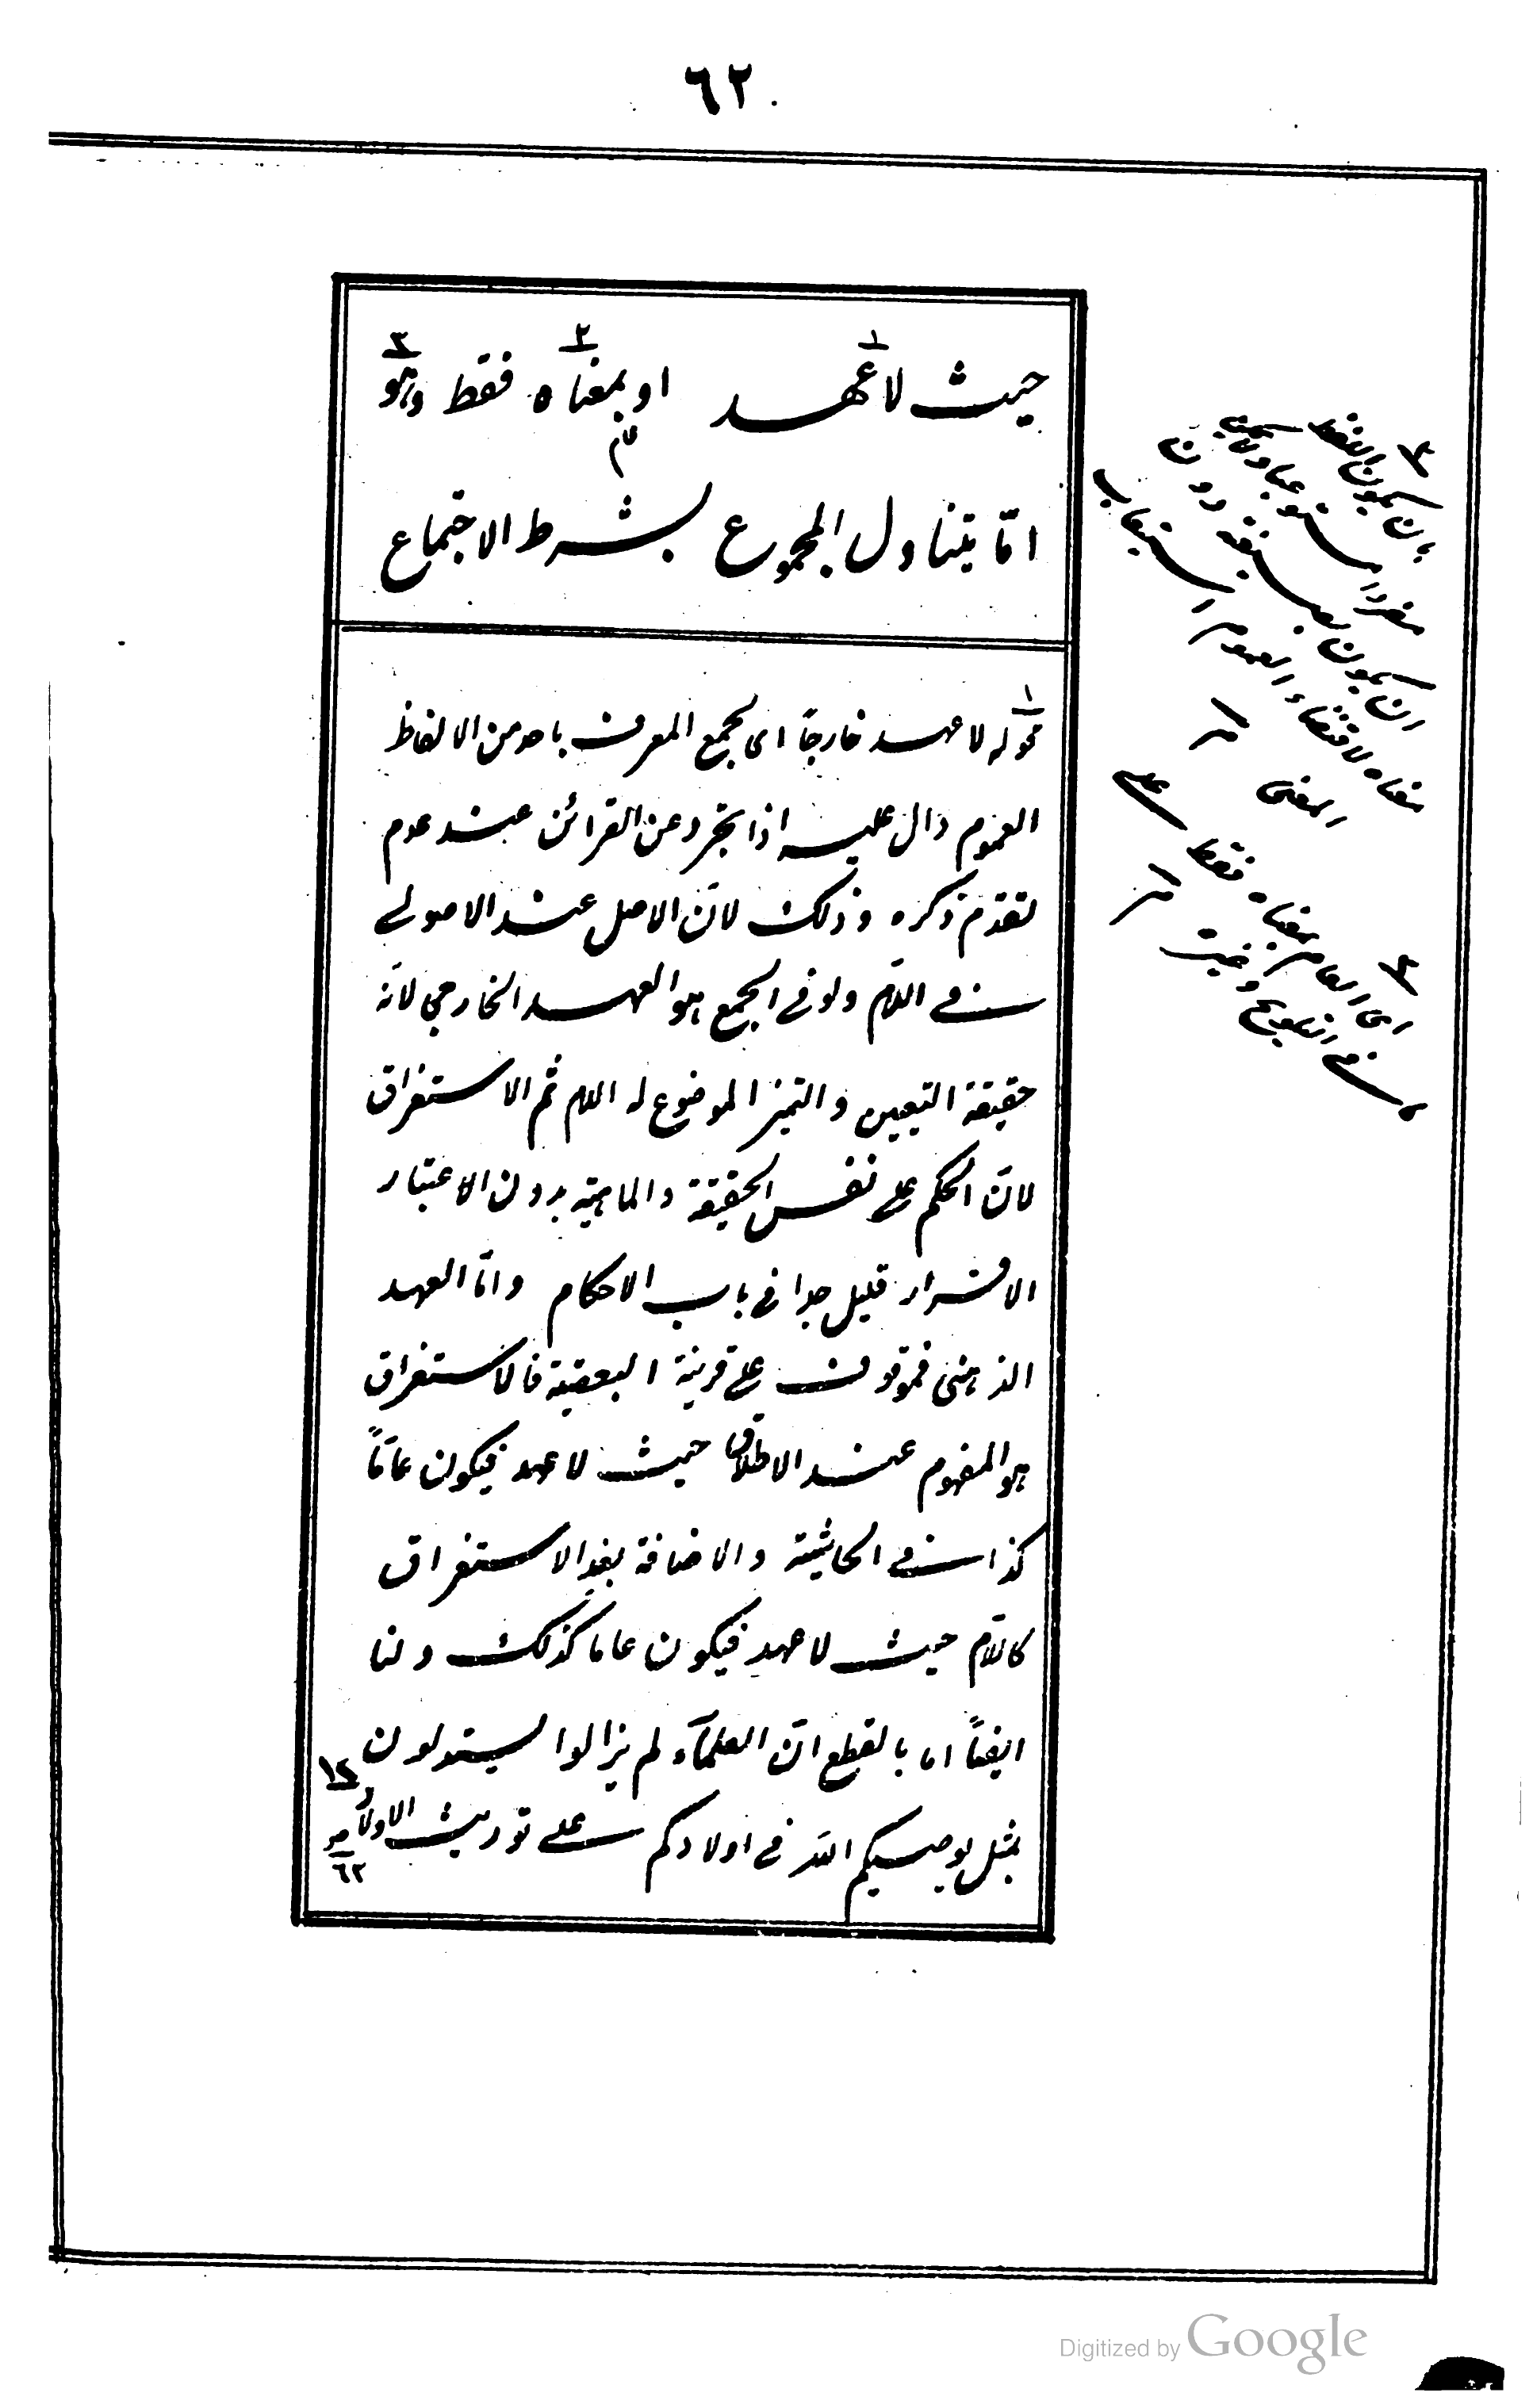 ٦٢
حيث لا عهد او بمعناه فقط وهو
امّا يتناول المجموع بشرط الاجتماع
قوله لا عهد خارجاً اى الجمع المعرف باحد من الالفاظ
العموم دال عليه اذا تجرد عن القرائن عند عدم
تقدّم ذكره وذلك لانّ الاصل عند الاصولى
فى اللّام ولو فى الجمع هو العهد الخارجى لانّه
حقيقة التعيين والتميز الموضوع له اللام ثم الاستغراق
لانّ الحكم على نفس الحقيقة والماهيّة بدون الاعتبار
الافراد قليل جدا فى باب الاحكام وامّا العهد
الذهنى فموقوف على قرينة البعضية فالاستغراق
هو المفهوم عند الاطلاق حيث لا عهد فيكون عامّاً
كذا فى الحاشية والاضافة يفيد الاستغراق
كاللّام حيث لا عهد فيكون عاما كذلك ولنا
ايضاً انا بالقطع انّ العلمآء لم يزالوا يستدلون
بمثل يوصيكم اللّه فى اولادكم على توريث الاولاد
١٢
٦٢
٢
بان يكون اللفظ
مفردا مستوعبا
ان يكون بصيغته دون
معناه لاقتضاء العموم استيعاب
المعنى
٣
اى العام بمعناه فقط على
Digitized by Google